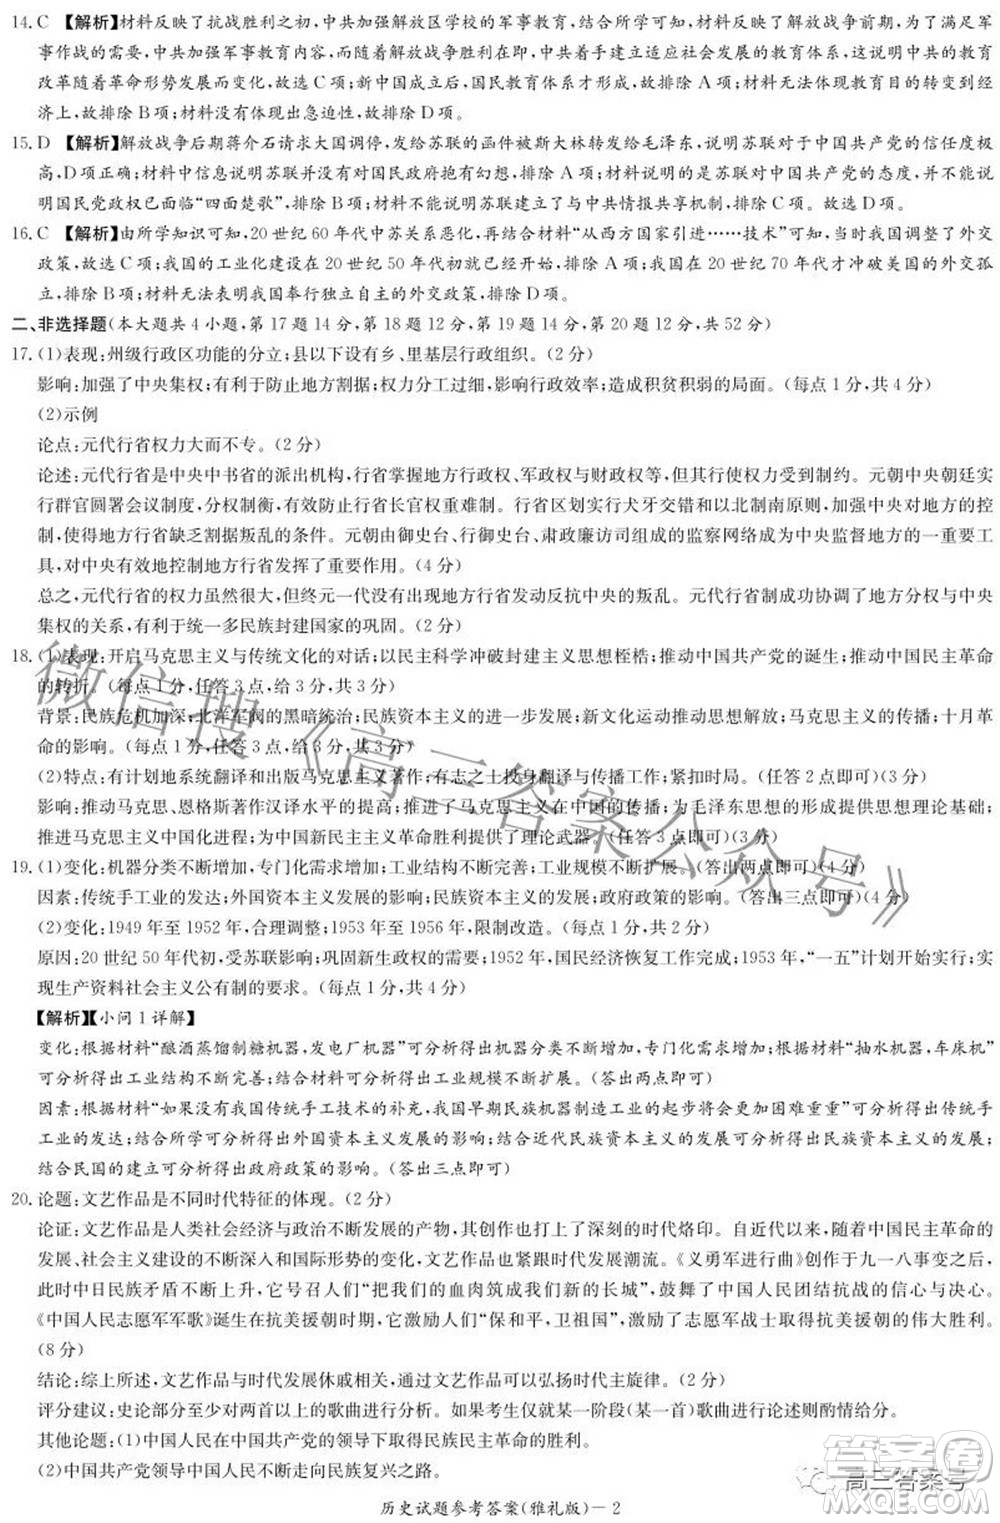 14. C 【解析】材料反映了抗战胜利之初,中共加强解放区学校的军事教育,结合所学可知,材料反映了解放战争前期,为了满足军
事作战的需要,中共加强军事教育内容,而随着解放战争胜利在即,中共着手建立适应社会发展的教育体系,这说明中共的教育
改革随着革命形势发展而变化,故选C项;新中国成立后,国民教育体系才形成,故排除A项;材料无法体现教育目的发展到经
济上,故排除B项;材料无法体现出急迫性,故排除D项。
15. D 【解析】解放战争后期蒋介石请求大国调停,发给苏联的函件被斯大林转发给毛泽东,说明苏联对于中国共产党的信任度极
高,D项正确;材料中信息说明苏联并没有对国民政府抱有幻想,排除A项;材料说明的是苏联对中国共产党的态度,并没有说
明国民党政权已面临“四面楚歌”,排除B项;材料并没有说明苏联建立了与中共情报共享机制,排除C项。故选D项。
16. C 【解析】由所学知识可知,20世纪60年代中苏关系恶化,再结合材料“从西方国家引进……技术”可知,当时我国调整了外交
政策,故选C项;我国的工业化建设在20世纪50年代初就已经开始,排除A项;我国在20世纪70年代才冲破美国的外交孤
立,排除B项;材料无法表明我国奉行独立自主的外交政策,排除D项。
二、非选择题(本大题共4小题,第17题14分,第18题12分,第19题14分,第20题12分,共52分)
17. (1)表现:州级行政区功能的分立;县以下设有乡、里基层行政组织。(2分)
影响:加强了中央集权;有利于防止地方割据;权力分工过细,影响行政效率;造成积贫积弱的局面。(每点1分,共4分)
(2)示例
论点:元代行省权力大而不专。(2分)
论述:元代行省是中央中书省的派出机构,行省掌握地方行政权、军政权与财政权等,但其行使权力受到约束。元朝中央朝廷实
行群官圆署会议制度,分权制衡,有效防止行省长官权重难制。行省区划实行犬牙交错和以北制南原则,加强中央对地方的控
制,使得地方行省缺乏叛乱的条件。元朝由御史台、行御史台、肃政廉访司组成的监察网络成为中央监督地方的一种重要工
具,对中央有效地控制地方行省发挥了重要作用。(4分)
总之,元代行省的权力虽然很大,但终元一代没有出现过地方行省发动反抗中央的叛乱。元代行省制成功协调了地方分权与中央
集权的关系,有利于统一多民族封建国家的巩固。(2分)
18. (1)表现:开启马克思主义与传统文化的对话;以民主科学冲破封建主义思想桎梏;推动中国共产党的诞生;推动中国民主革命
的转折。(每点1分,任答3点,给3分,共3分)
背景:民族危机加深;北洋军阀的黑暗统治;民族资本主义的进一步发展;新文化运动推动思想解放;马克思主义的传播;十月革
命的影响。(每点1分,任答3点,给3分,共3分)
(2)特点:有计划地系统翻译和出版马克思主义著作;有志之士投身翻译与传播工作;紧扣时局。(任答2点即可)(3分)
影响:推动马克思、恩格斯等著作汉译水平的提高;推进了马克思主义在中国的传播;为毛泽东思想的形成提供思想理论基础;
推进马克思主义中国化进程;为中国新民主主义革命胜利提供了理论武器。(任答3点即可)(3分)
19. (1)变化:机器分类不断增加,专门化需求增加;工业结构不断完善;工业规模不断扩展。(答出两点即可)(4分)
因素:传统手工业的发达;外国资本主义发展的影响;民族资本主义的发展;政府政策的影响。(答出三点即可)(4分)
(2)变化:1949年至1952年,合理调整;1953年至1956年,限制改造。(每点1分,共2分)
原因:20世纪50年代初,受苏联影响;巩固新生政权的需要;1952年,国民经济恢复工作完成;1953年,“一五”计划开始实行;
实现生产资料社会主义公有制的要求。(每点1分,共4分)
【解析】【小问1详解】
变化:根据材料“酿酒蒸馏制糖机器,发电厂机器”可分析得出机器分类不断增加,专门化需求增加;根据材料“抽水机器,车床机”
可分析得出工业结构不断完善;结合材料可分析得出工业规模不断扩展。(答出两点即可)
因素:根据材料“如果没有我国传统手工技术的补充,我国早期民族机器制造工业的出现会更加困难重重”可分析得出传统手
工业的发达;结合所学可分析得出外国资本主义发展的影响;结合近代民族资本主义发展可分析得出民族资本主义的发展;
结合民国的建立可分析得出政府政策的影响。(答出三点即可)
20. 论题:文艺作品是不同时代特征的体现。(2分)
论证:文艺作品是人类社会经济与政治不断发展的产物,其创作也打上了深刻的时代烙印。自近代以来,随着中国民主革命的
发展、社会主义建设的不断深入和国际形势的变化,文艺作品也紧跟时代发展潮流。《义勇军进行曲》创作于九一八事变之后,
此时中日民族矛盾不断上升,它号召人们“把我们的血肉筑成我们新的长城”,鼓舞了中国人民团结抗战的信心与决心。
《中国人民志愿军军歌》诞生在抗美援朝时期,它激励人们“保和平,卫祖国”,激励了志愿军战士取得抗美援朝的伟大胜利。
(8分)
结论:综上所述,文艺作品与时代发展休戚相关,通过文艺作品可以弘扬时代主旋律。(2分)
评分建议:史论部分至少对两首以上的歌曲进行分析。如果考生仅就某一阶段(某一首)歌曲进行论述则酌情给分。
其他论题:(1)中国人民在中国共产党的领导下取得民族民主革命的胜利。
(2)中国共产党领导中国人民不断走向民族复兴之路。
历史试题参考答案(雅礼版)-2
微信搜《高三答案公众号》
高三答案号
答案圈
MXQE.COM